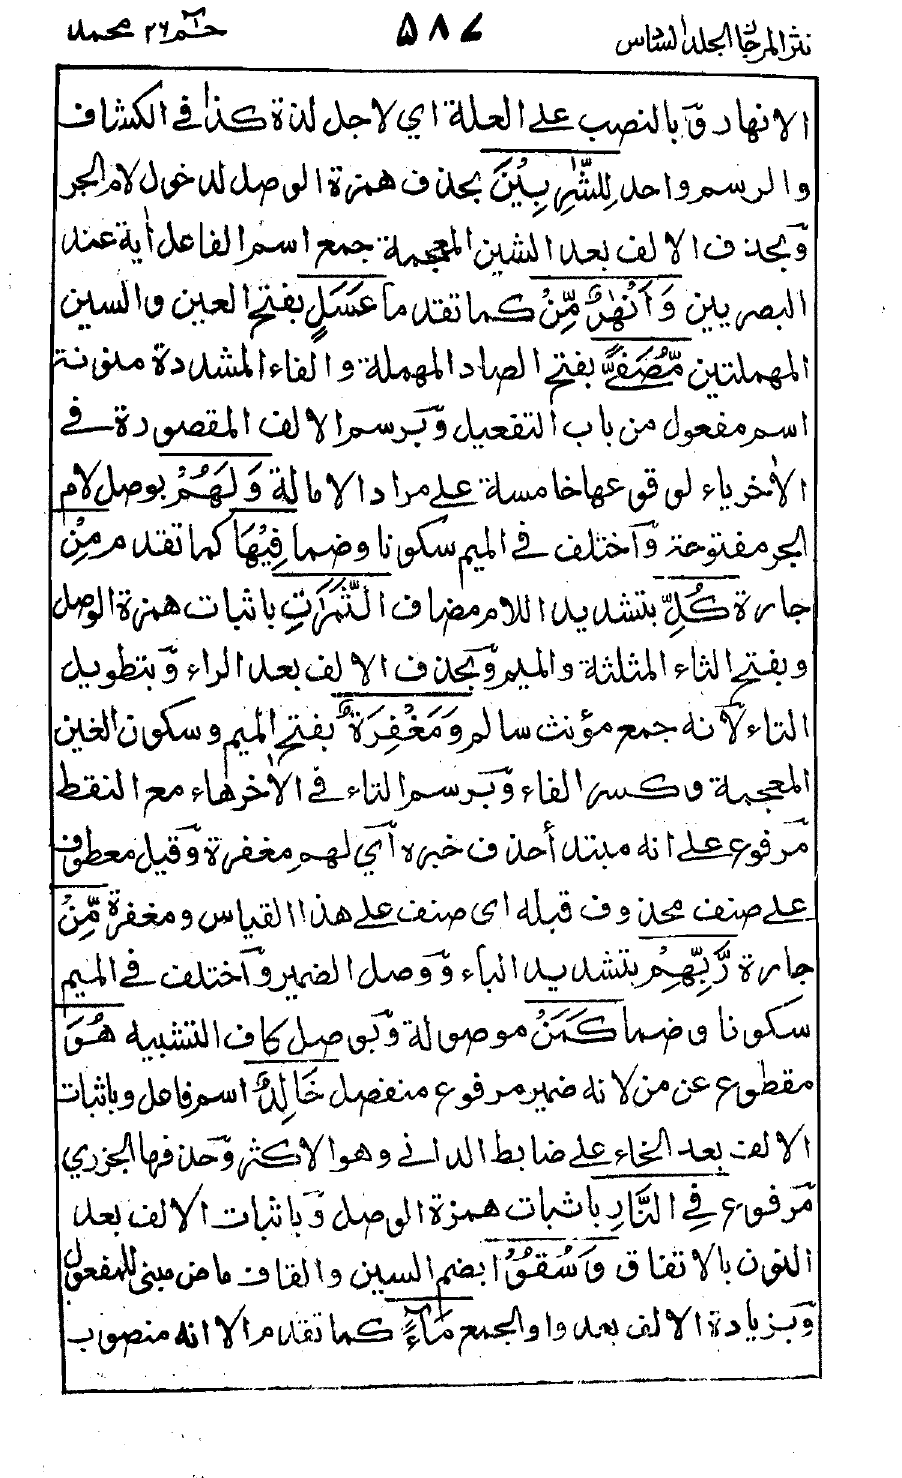 نثر المرجان الجلد السادس
٥٨٧
حٰم ٢٦ محمد
الانهار وَ بالنصب على العلة اي لاجل لذة كذا في الكشاف
والرسم واحد لِلشّٰرِبِيْنَ بحذف همزة الوصل لدخول لام الجر
وَبحذف الالف بعد الشين المعجمة جمع اسم الفاعل أية عند
البصريين وَاَنْهٰرٌ مِّنْ كما تقدم عَسَلٍ بفتح العين والسين
المهملتين مُّصَفًّى بفتح الصاد المهملة والفاء المشددة منونة
اسم مفعول من باب التفعيل وَبرسم الالف المقصورة في
الأخر ياء لوقوعها خامسة على مراد الامالة وَلَهُمْ بوصل لام
الجر مفتوحة وَاختلف في الميم سكونا وضما فِيْهَا كما تقدم مِنْ
جارة كُلِّ بتشديد اللام مضاف الثَّمَرٰتِ باثبات همزة الوصل
وبفتح الثاء المثلثة والميم وَبحذف الالف بعد الراء وَبتطويل
التاء لانه جمع مؤنث سالم وَمَغْفِرَةٌ بفتح الميم وسكون الغين
المعجمة وكسر الفاء وَبرسم التاء في الأخر هاء مع النقط
مَرفوع على انه مبتدأ حذف خبره اَي لهم مغفرة وَقيل معطوف
على صنف محذوف قبله اى صنف على هذا القياس ومغفرة مِّنْ
جارة رَّبِّهِمْ بتشديد الباء وَوصل الضمير وَاختلف في الميم
سكونا وضما كَمَنْ موصولة وَبوصل كاف التشبيه هُوَ
مقطوع عن من لانه ضمير مرفوع منفصل خَالِدٌ اسم فاعل وباثبات
الالف بعد الخاء على ضابط الداني وهو الاكثر وَحذفها الجزري
مَرفوع فِي النَّارِ باثبات همزة الوصل وَباثبات الالف بعد
النون بالاتفاق وَسُقُوْا بضم السين والقاف ماض مبنى للمفعول
وَبزيادة الالف بعد واو الجمع مَآءً كما تقدم الا انه منصوب